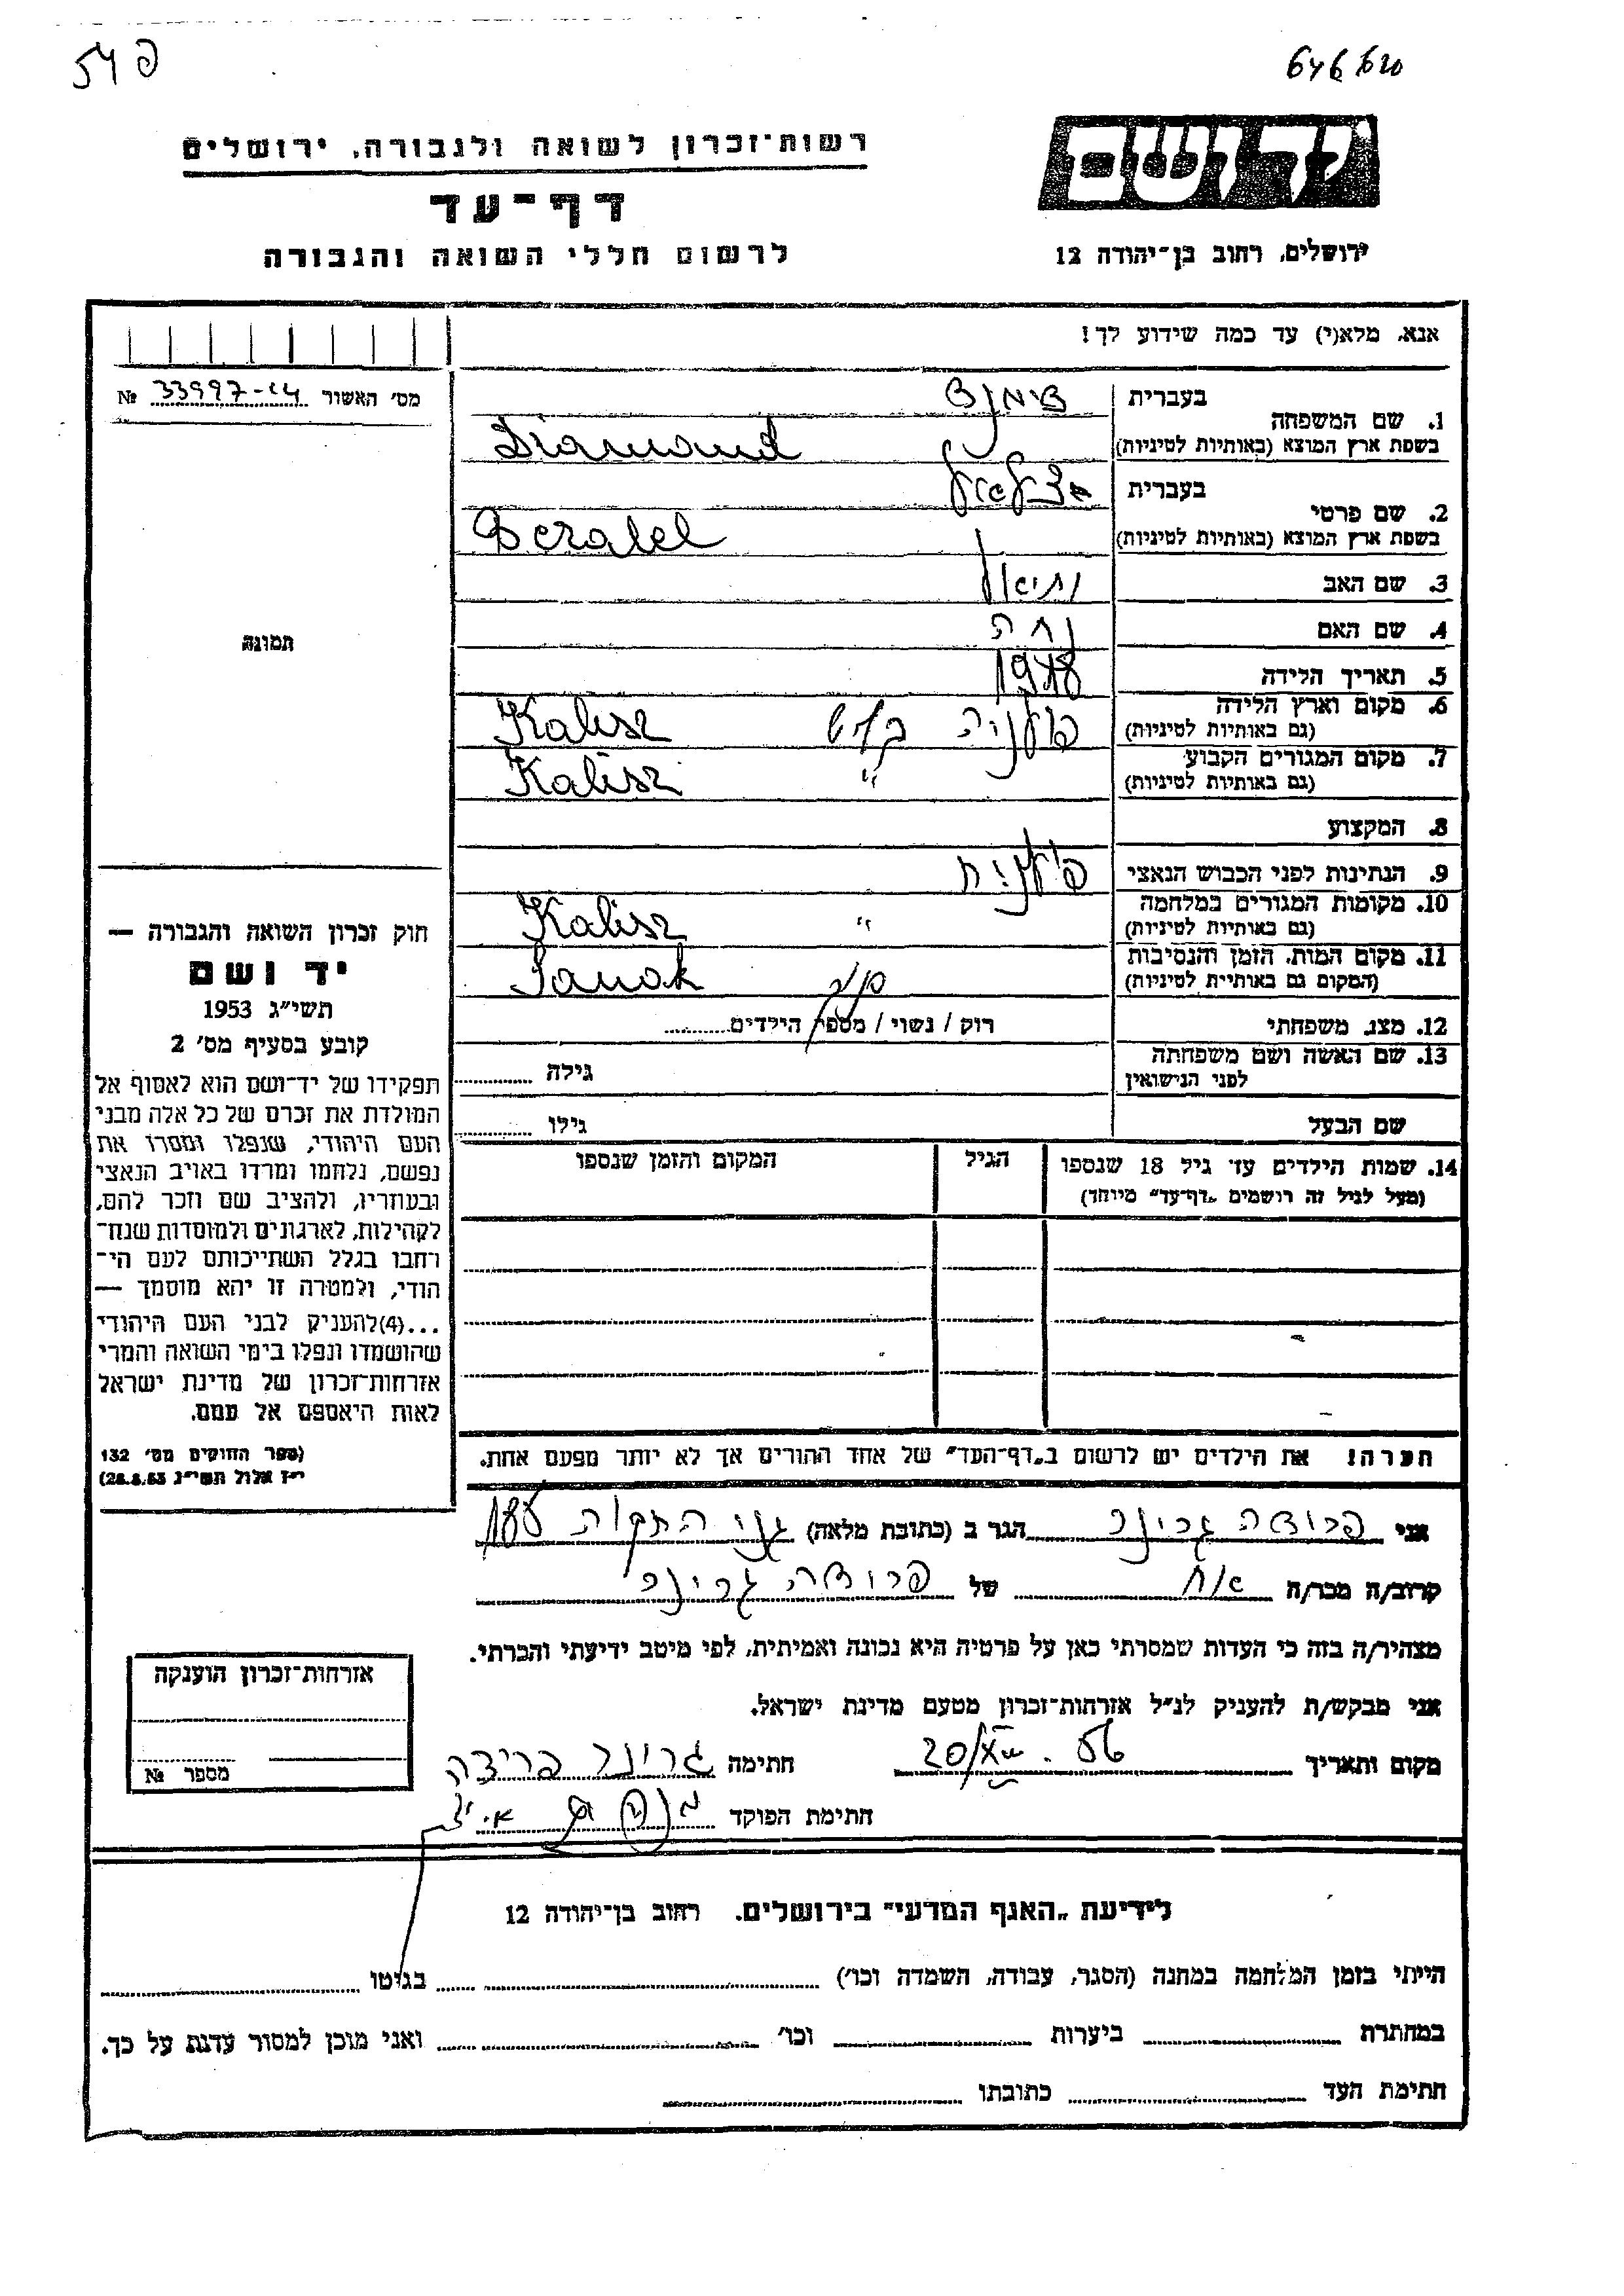 54פ
רשות־זכרון לשואה ולגבורה, ירושלים
דף־עד
לרשום חללי השואה והגבורה
ידושם
ירושלים, רחוב בן־יהודה 12
אנא, מלא(י) עד כמה שידוע לך!
מס׳ האשור 33997-14 №
תמונה
בעברית
1. שם המשפחה
בשפת ארץ המוצא (באותיות לטיניות) Diamand
בעברית בצלאל
2. שם פרטי
בשפת ארץ המוצא (באותיות לטיניות) Bezalel
3. שם האב
4. שם האם
5. תאריך הלידה
6. מקום וארץ הלידה פולניה קליש Kalisz
(גם באותיות לטיניות)
7. מקום המגורים הקבוע " Kalisz
(גם באותיות לטיניות)
8. המקצוע
9. הנתינות לפני הכבוש הנאצי פולנית
10. מקומות המגורים במלחמה " Kalisz
(גם באותיות לטיניות)
11. מקום המות, הזמן והנסיבות Sanok
(המקום גם באותיית לטיניות)
12. מצב משפחתי רוק / נשוי / מספר הילדים
13. שם האשה ושם משפחתה גילה
לפני הנישואין
שם הבעל גילו
14. שמות הילדים עד גיל 18 שנספו הגיל המקום והזמן שנספו
(מעל לגיל זה רושמים „דף־עד״ מיוחד)
הערה! את הילדים יש לרשום ב„דף־העד״ של אחד ההורים אך לא יותר מפעם אחת.
חוק זכרון השואה והגבורה —
יד ושם
תשי״ג 1953
קובע בסעיף מס׳ 2
תפקידו של יד־ושם הוא לאסוף אל
המולדת את זכרם של כל אלה מבני
העם היהודי, שנפלו ומסרו את
נפשם, נלחמו ומרדו באויב הנאצי
ובעוזריו, ולהציב שם וזכר להם,
לקהילות, לארגונים ולמוסדות שנח־
רחבו בגלל השתייכותם לעם הי־
הודי, ולמטרה זו יהא מוסמך —
...(4)להעניק לבני העם היהודי
שהושמדו ונפלו בימי השואה והמרי
אזרחות־זכרון של מדינת ישראל
לאות היאספם אל עמם.
(ספר החוקים מס׳ 132
י״ז אלול תשי״ג 28.8.53)
אני גרינר הגר ב (כתובת מלאה) גני התקוה
קרוב/ה מכר/ה אח של גרינר
מצהיר/ה בזה כי העדות שמסרתי כאן על פרטיה היא נכונה ואמיתית, לפי מיטב ידיעתי והכרתי.
אני מבקש/ת להעניק לנ״ל אזרחות־זכרון מטעם מדינת ישראל.
מקום ותאריך חתימה גרינר
חתימת הפוקד
אזרחות־זכרון הוענקה
מספר №
לידיעת „האגף המדעי״ בירושלים. רחוב בן־יהודה 12
הייתי בזמן המלחמה במחנה (הסגר, עבודה, השמדה וכו׳) בגיטו
במחתרת ביערות וכו׳ ואני מוכן למסור עדות על כך.
חתימת העד כתובתו